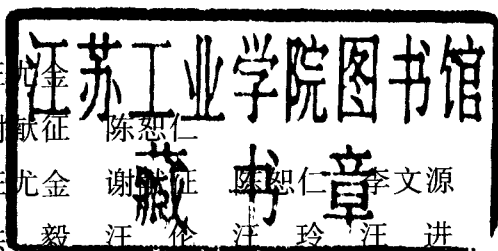 江苏工业学院图书馆
藏书章
尤金
献征 陈恕仁
尤金 谢献征 陈恕仁 李文源
毅 汪伦 汪玲 汪进